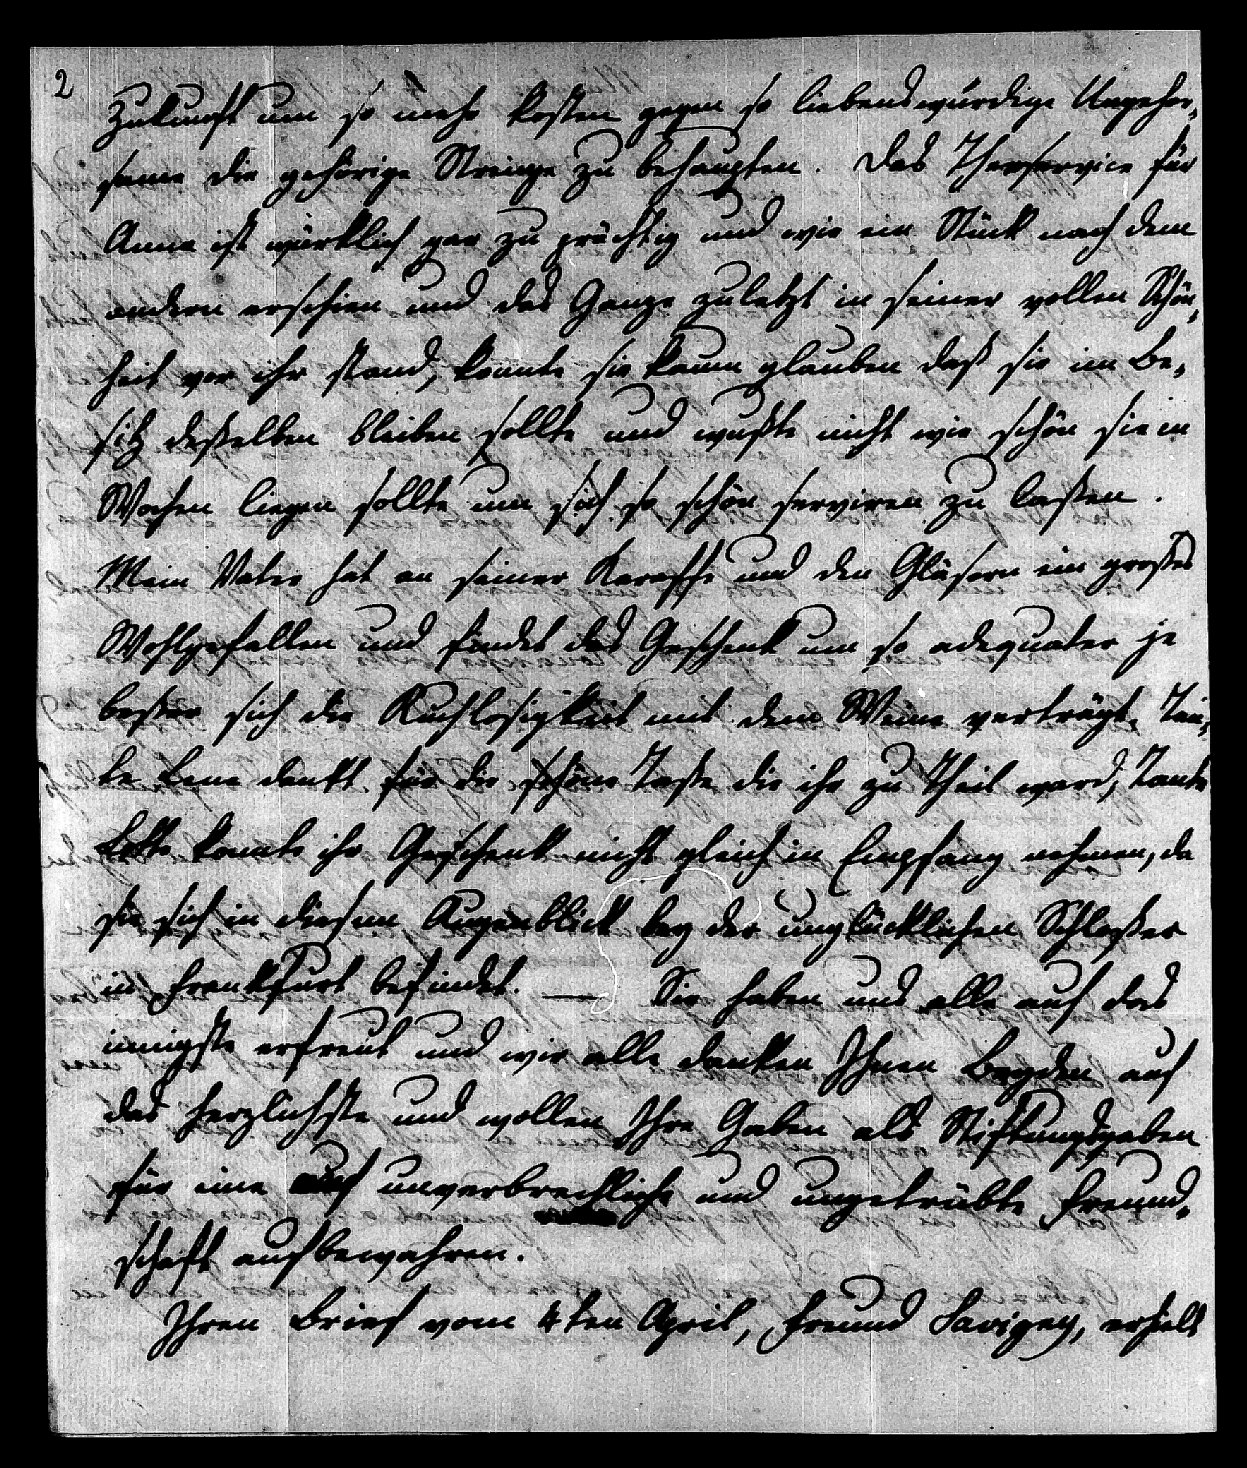 2
Zukunft um so mehr kosten gegen so liebenswürdige Ungehor,
same die gehörige Strenge zu behaupten. Das Theeservice für
Anna ist würklich gar zu prächtig und wie ein Stück nach dem
andern erschien und das Ganze zuletzt in seiner vollen Schön,
heit vor ihr stand, konnte sie kaum glauben daß sie im Be,
sitz deßelben bleiben sollte und wußte nicht wie schön sie in
Wochen liegen sollte um sich so schön serviren zu laßen.
Mein Vater hat an seiner Karaffe und den Gläsern ein großes
Wohlgefallen und findet das Geschenk um so adequater je
beßer sich die Ruchlosigkeit mit dem Weine verträgt. Tan,
te Lene dankt für die schöne Taße die ihr zu Theil ward, Tante
Lotte konnte ihr Geschenk nicht gleich in Empfang nehmen, da
sie sich in diesem Augenblick bey der unglücklichen Schloßer
in Frankfurt befindet. — Sie haben uns alle auf das
innigste erfreut und wir alle danken Ihnen Beyden auf
das herzlichste und wollen Ihre Gaben als Stiftungsgaben
für eine unverbrechliche und ungetrübte Freund,
schaft aufbewahren.
Ihren Brief vom 4ten April, Freund Savigny, erhielt